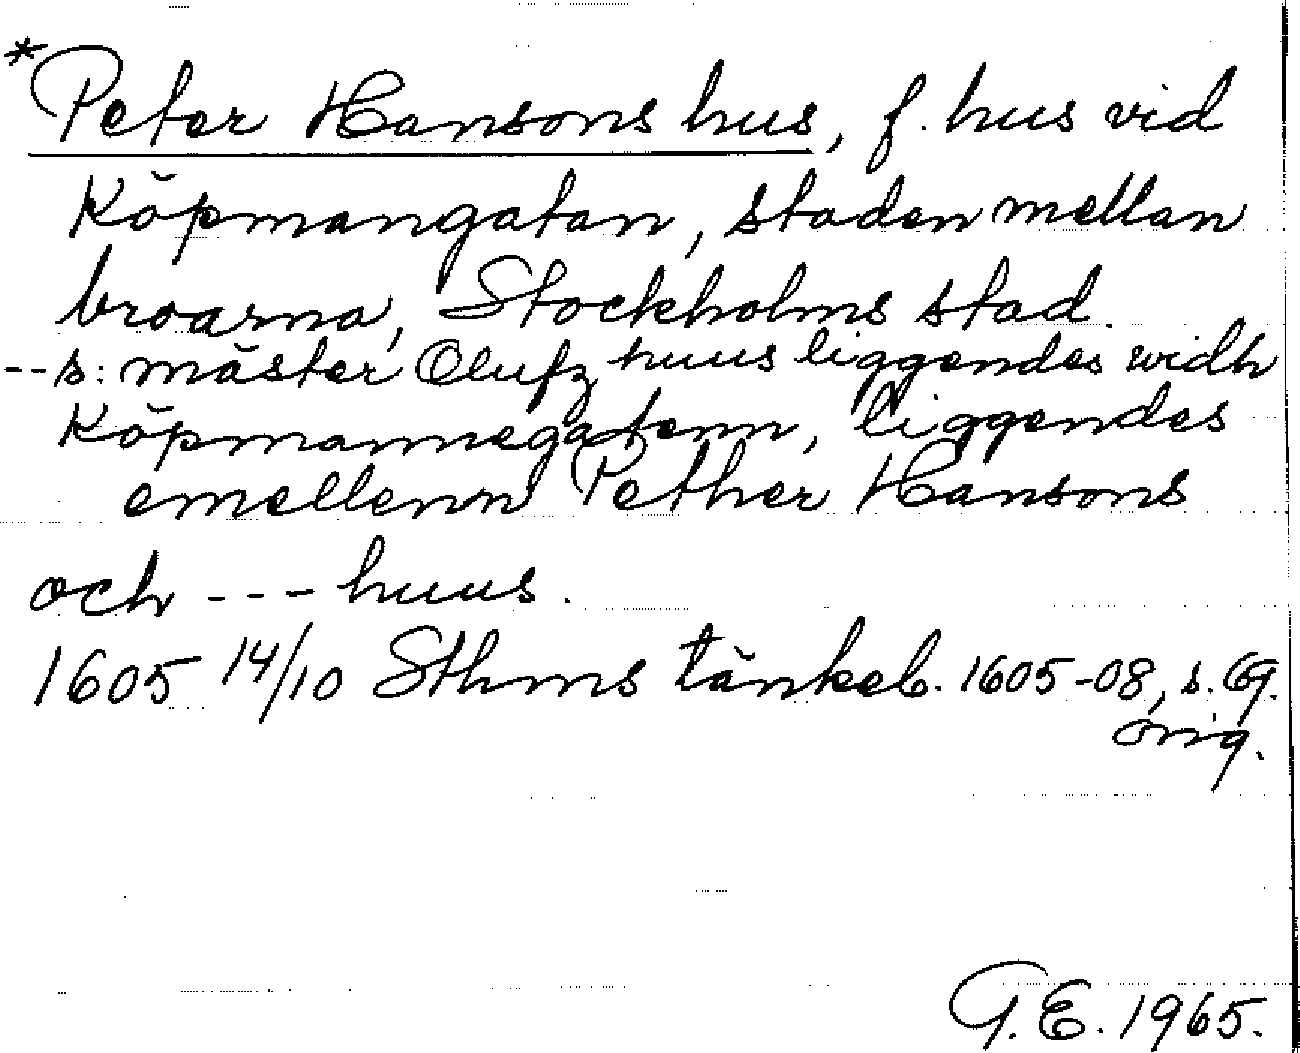 *Peter Hansons hus, f. hus vid
Köpmangatan, staden mellan
broarna, Stockholms stad.
-- s: mäster Olufz huus liggendes widh
Köpmannegatenn, liggendes
emellenn Pether Hansons
och --- huus.
1605 14/10 Sthms tänkeb. 1605-08, s. 69.
orig.
G.E. 1965.